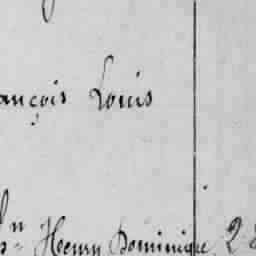 ançois Louis
Henry Dominique 2